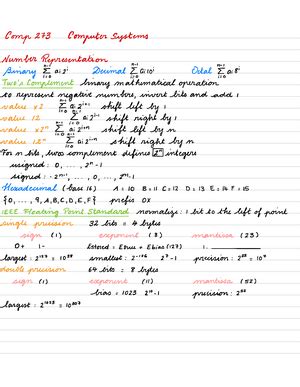 Comp 273 Computer Systems
Number Representation
Binary Σ ai 2^i Decimal Σ ai 10^i Octal Σ ai 8^i
Two's Complement binary mathematical operation
to represent negative numbers, invert bits and add 1
value x2 Σ ai 2^i+1 shift left by 1
value /2 Σ ai 2^i-1 shift right by 1
value x2^n Σ ai 2^i+n shift left by n
value /2^n Σ ai 2^i-n shift right by n
For n bits, two complement defines 2^n integers
unsigned: 0, ..., 2^n-1
signed: -2^n-1, ..., 0, ..., 2^n-1
Hexadecimal (base 16) A=10 B=11 C=12 D=13 E=14 F=15
{0, ..., 9, A, B, C, D, E, F} prefix 0X
IEEE Floating Point Standard normalize: 1 bit to the left of point
single precision 32 bits = 4 bytes
sign (1) exponent (8) mantissa (23)
0+ 1- Estored = Etrue + Ebias (127) 1.
largest: 2^127 = 10^38 smallest: 2^-126 precision:
double precision 64 bits = 8 bytes
sign (1) exponent (11) mantissa (52)
bias = 1023 2^n-1 precision: 2^52
largest: 2^1023 = 10^307